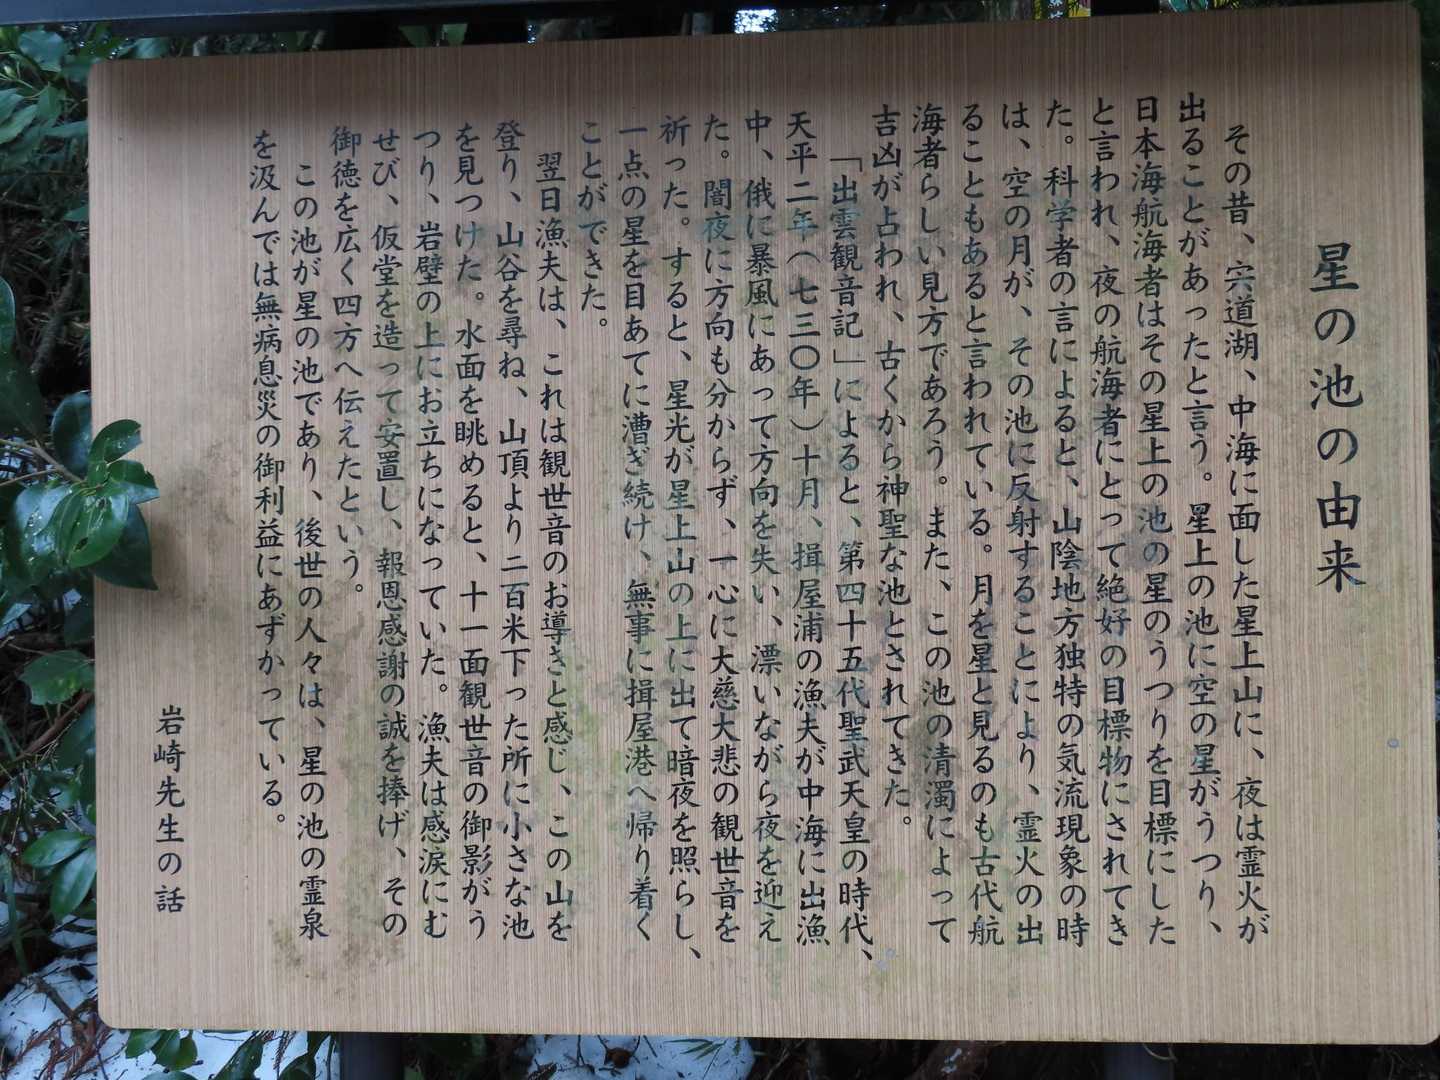 星の池の由来
その昔、宍道湖、中海に面した星上山に、夜は霊火が
出ることがあったと言う。星上の池に空の星がうつり、
日本海航海者はその星上の池の星のうつりを目標にした
と言われ、夜の航海者にとって絶好の目標物にされてき
た。科学者の言によると、山陰地方独特の気流現象の時
は、空の月が、その池に反射することにより、霊火の出
ることもあると言われている。月を星と見るのも古代航
海者らしい見方であろう。また、この池の清濁によって
吉凶が占われ、古くから神聖な池とされてきた。
「出雲観音記」によると、第四十五代聖武天皇の時代、
天平二年(七三〇年)十月、揖屋浦の漁夫が中海に出漁
中、俄に暴風にあって方向を失い、漂いながら夜を迎え
た。闇夜に方向も分からず、一心に大慈大悲の観世音を
祈った。すると、星光が星上山の上に出て暗夜を照らし、
一点の星を目あてに漕ぎ続け、無事に揖屋港へ帰り着く
ことができた。
翌日漁夫は、これは観世音のお導きと感じ、この山を
登り、山谷を尋ね、山頂より二百米下った所に小さな池
を見つけた。水面を眺めると、十一面観世音の御影がう
つり、岩壁の上にお立ちになっていた。漁夫は感涙にむ
せび、仮堂を造って安置し、報恩感謝の誠を捧げ、その
御徳を広く四方へ伝えたという。
この池が星の池であり、後世の人々は、星の池の霊泉
を汲んでは無病息災の御利益にあずかっている。
岩崎先生の話